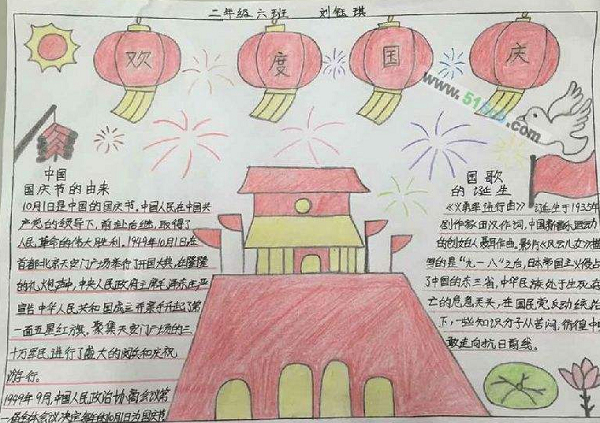 二年级六班 刘钰琪
欢度国庆
www.51
.com
中国
国庆节的由来
10月1日是中国的国庆节,中国人民在中国共
产党的领导下,前赴后继,取得了
人民革命的伟大胜利,1949年10月1日,在
首都北京天安门广场举行了开国大典,在隆隆
的礼炮声中,中央人民政府主席毛泽东庄严
宣告中华人民共和国成立并亲手升起了第
一面五星红旗,聚集天安门广场的三
十万军民进行了盛大的阅兵和庆祝
游行。
1949年9月,中国人民政治协商会议第
一届会议决定每年的10月1日为国庆节
国歌
的诞生
《义勇军进行曲》诞生于1935年
创作,田汉作词,中国新音乐运动
的创始人聂耳作曲,影片《风云儿女》描
的是“九一八”之后,日本帝国主义侵占
了中国的东三省,中华民族处于生死存
亡的危急关头,在国民党反动统治
下,一些知识分子从苦闷,彷徨中
敢走向抗日前线。